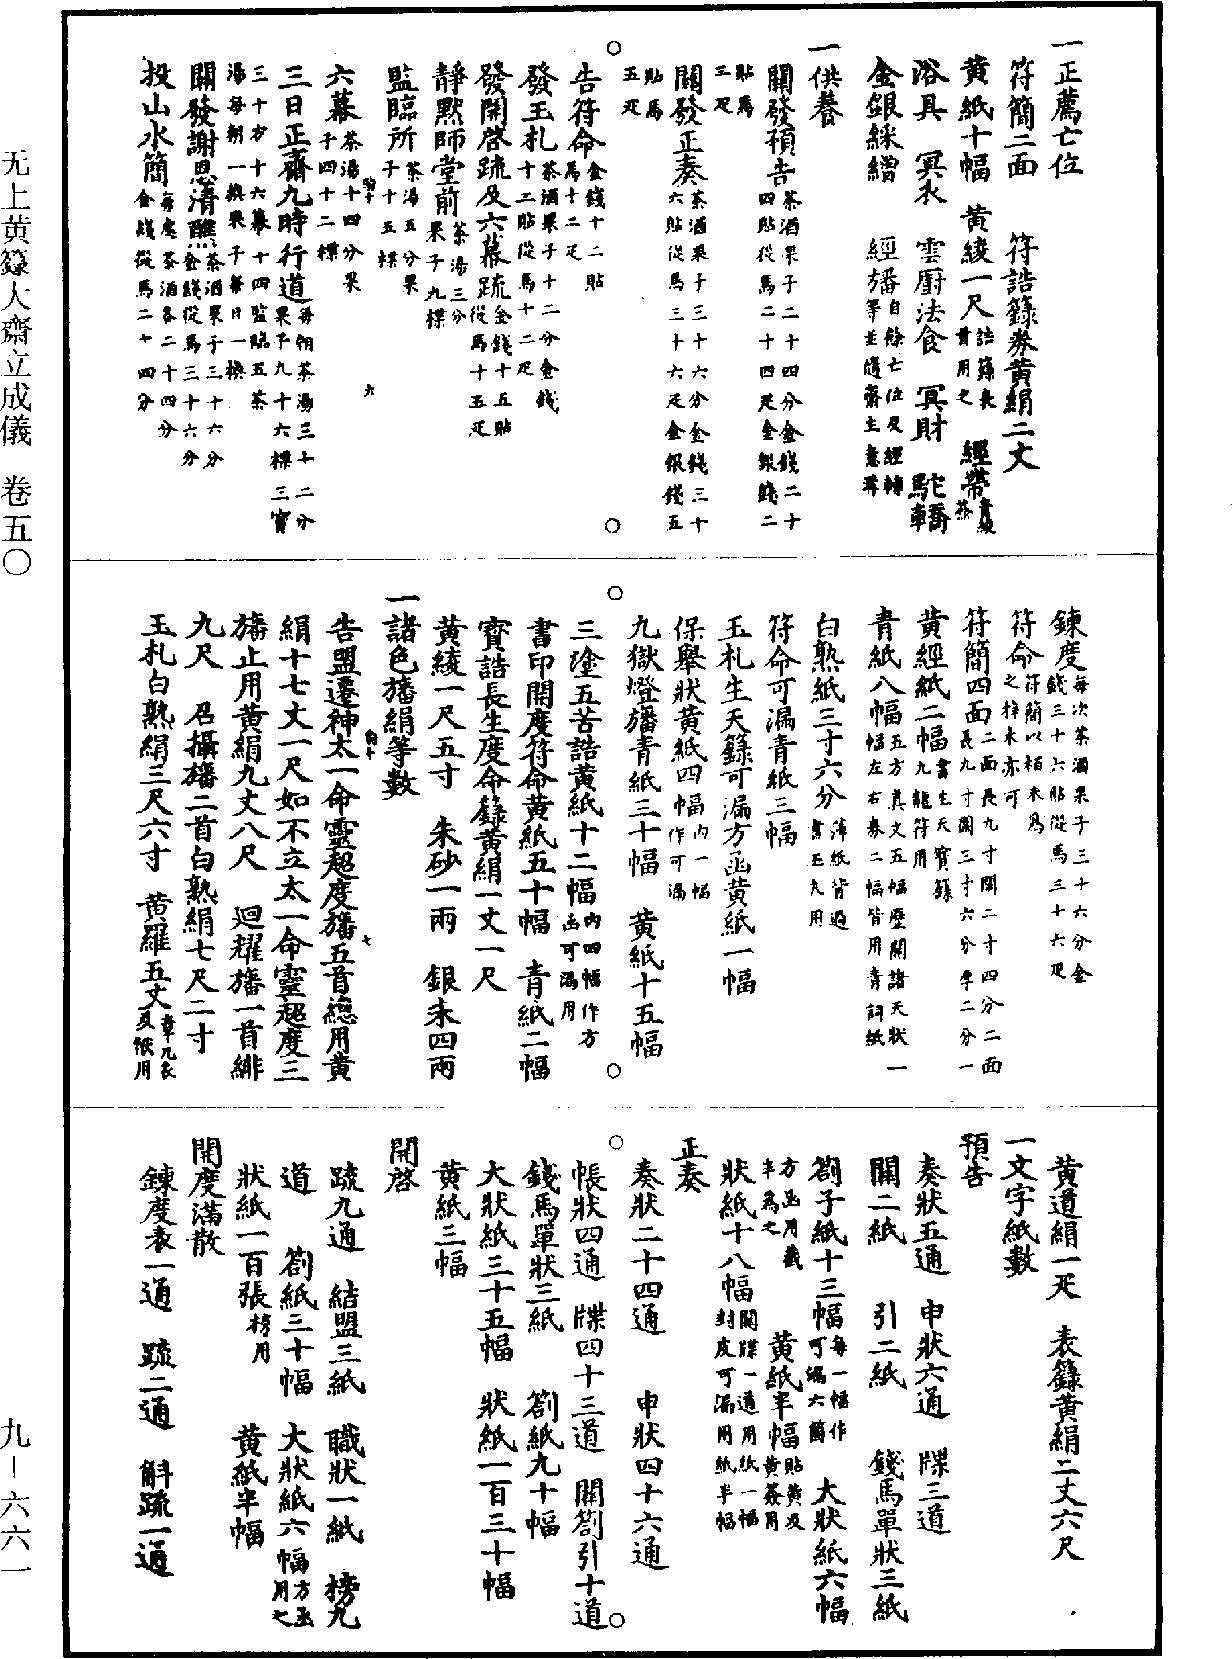 无上黃籙大齋立成儀　卷五〇
九－六六一
一正薦亡位
符簡二面　符誥籙券黃絹二丈
黃紙十幅　黃綾一尺誥籙表黃用之　經帶
浴具　冥衣　雲廚法食　冥財　駝轎
金銀綵繒　經旛自餘亡位及經等並隨齋主意
一供養
關發預告茶酒果子二十四分金錢二十四貼從馬二十四疋金銀錢二
貼馬三疋
關發正奏茶酒果子三十六分金錢三十六貼從馬三十六疋金銀錢五
貼馬五疋
告符命金錢十二貼馬十二疋
發玉札茶酒果子十二分金錢十二貼從馬十二疋
發開啓疏及六幕疏金錢十五貼從馬十五疋
靜默師堂前茶湯三分果子九楪
監臨所茶湯五分果子十五楪
六幕茶湯十四分果子四十二楪
三日正齋九時行道每朝茶湯三十二分果子九十六楪三寶
三十方十六幕十四監臨五茶湯每朝一換果子每日一換
關發謝恩清醮茶酒果子三十六分金錢從馬三十六分
投山水簡每處茶酒各二十四分金錢從馬二十四分
鍊度每次茶酒果子三十六分金錢三十六貼從馬三十六疋
符命符簡以栢木爲之梓木亦可
符簡四面二面長九寸闊二寸四分二面長九寸闊三寸六分厚二分一
黃經紙二幅書生天寶籙九龍符用
青紙八幅五方眞文五幅歷關諸天狀一幅左右券二幅皆用青詞紙
白熟紙三寸六分薄紙背過書玉札用
符命可漏青紙三幅
玉札生天籙可漏方函黃紙一幅
保舉狀黃紙四幅內一幅作可漏
九獄燈旛青紙三十幅　黃紙十五幅
三塗五苦誥黃紙十二幅內四幅作方函可漏用
書印開度符命黃紙五十幅　青紙二幅
寶誥長生度命籙黃絹一丈一尺
黃綾一尺五寸　朱砂一兩　銀朱四兩
一諸色旛絹等數
告盟遷神太一命靈超度旛五首總用黃
絹十七丈一尺如不立太一命靈超度三
旛止用黃絹九丈八尺　迴耀旛一首緋
九尺　召攝旛二首白熟絹七尺二寸
玉札白熟絹三尺六寸　黃羅五丈章几衣及帳用
黃道絹一疋　表籙黃絹二丈六尺
一文字紙數
預告
奏狀五通　申狀六通　牒三道
關二紙　引二紙　錢馬單狀三紙
劄子紙十三幅每一幅作可漏六箇　大狀紙六幅
方函用截半爲之　黃紙半幅貼黃及黃簽用
狀紙十八幅關牒一通用紙一幅封皮可漏用紙半幅
正奏
奏狀二十四通　申狀四十六通
帳狀四通　牒四十三道　關劄引十道
錢馬單狀三紙　劄紙九十幅
大狀紙三十五幅　狀紙一百三十幅
黃紙三幅
開啓
疏九通　結盟三紙　職狀一紙　榜九
道　劄紙三十幅　大狀紙六幅方函用之
狀紙一百張榜用　黃紙半幅
開度滿散
鍊度表一通　疏二通　斛疏一通